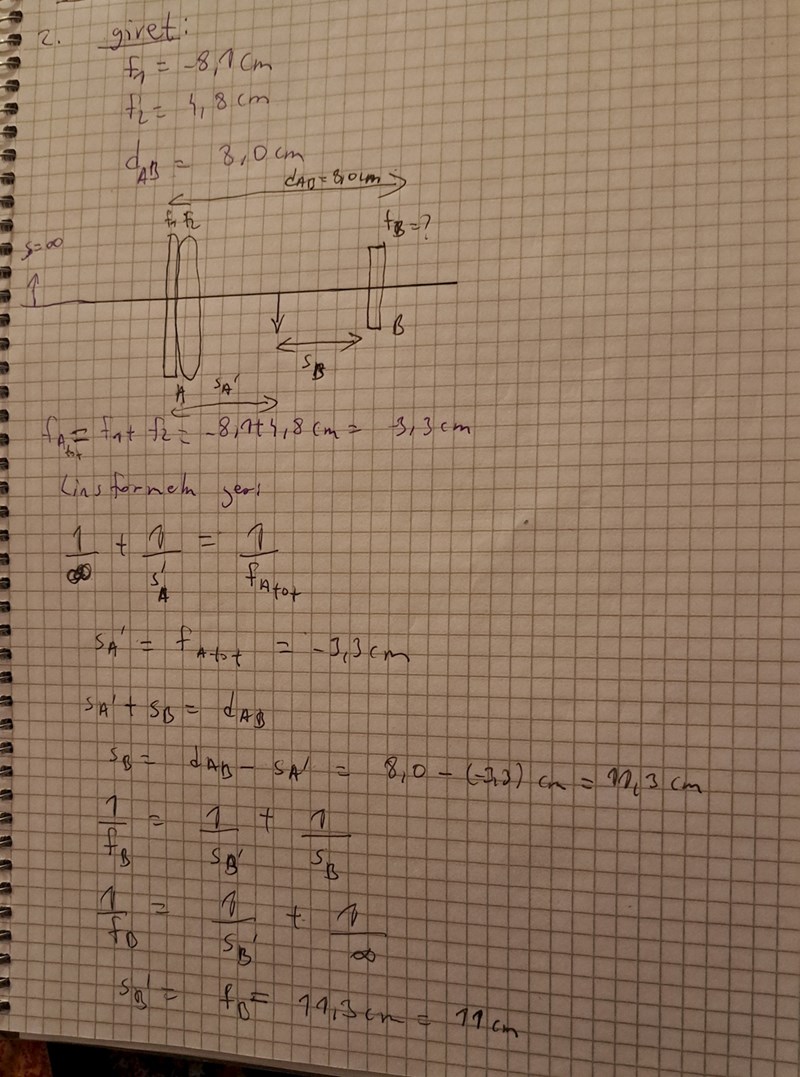 2. givet:
f₁ = -8,1 cm
f₂ = 4,8 cm
d_AB = 8,0 cm
d_AB = 8,0 cm
f₁ f₂
f_B = ?
s=∞
B
s_B
A
s_A'
f_Atot = f₁ + f₂ = -8,1+4,8 cm = -3,3 cm
Linsformeln ger:
1/∞ + 1/s_A' = 1/f_Atot
s_A' = f_Atot = -3,3 cm
s_A' + s_B = d_AB
s_B = d_AB - s_A' = 8,0 - (-3,3) cm = 11,3 cm
1/f_B = 1/s_B' + 1/s_B
1/f_B = 1/s_B' + 1/∞
s_B' = f_B = 11,3 cm = 11 cm